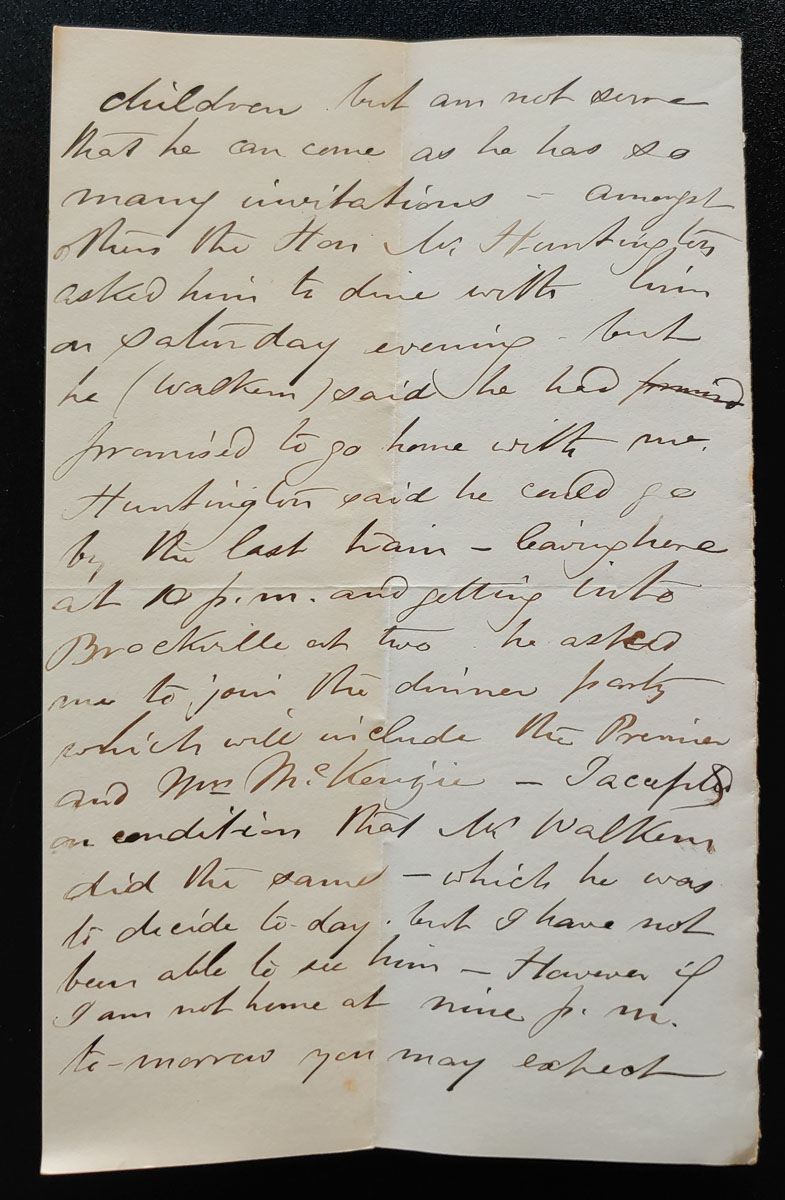 children but am not sure
that he can come as he has so
many invitations – amongst
others the Hon Mr Huntington
asked him to dine with him
on Saturday evening – but
he (Walkem) said he had
promised to go home with me.
Huntington said he could go
by the last train – leaving here
at 10 p.m. and getting into
Brockville at two he asked
me to join the dinner party
which will include the Premier
and Mrs McKenzie – I accepted
on condition that Mr Walkem
did the same – which he was
to decide to-day. but I have not
been able to see him – However if
I am not home at nine p.m.
to-morrow you may expect